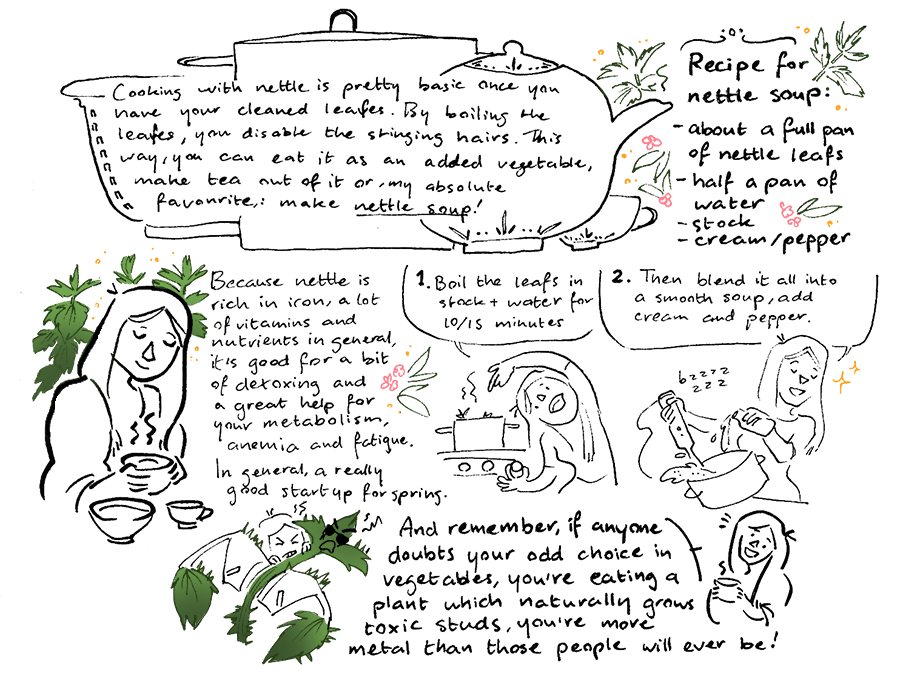 Cooking with nettle is pretty basic once you
have your cleaned leafes. By boiling the
leafes, you disable the stinging hairs. This
way, you can eat it as an added vegetable,
make tea out of it or, my absolute
favourite,: make nettle soup!
Recipe for
nettle soup:
- about a full pan
of nettle leafs
- half a pan of
water
- stock
- cream/pepper
Because nettle is
rich in iron, a lot
of vitamins and
nutrients in general,
it is good for a bit
of detoxing and
a great help for
your metabolism,
anemia and fatigue.
In general, a really
good startup for spring.
1. Boil the leafs in
stock + water for
10/15 minutes
2. Then blend it all into
a smooth soup, add
cream and pepper.
bzzzz
zzz
And remember, if anyone
doubts your odd choice in
vegetables, you're eating a
plant which naturally grows
toxic studs, you're more
metal than those people will ever be!